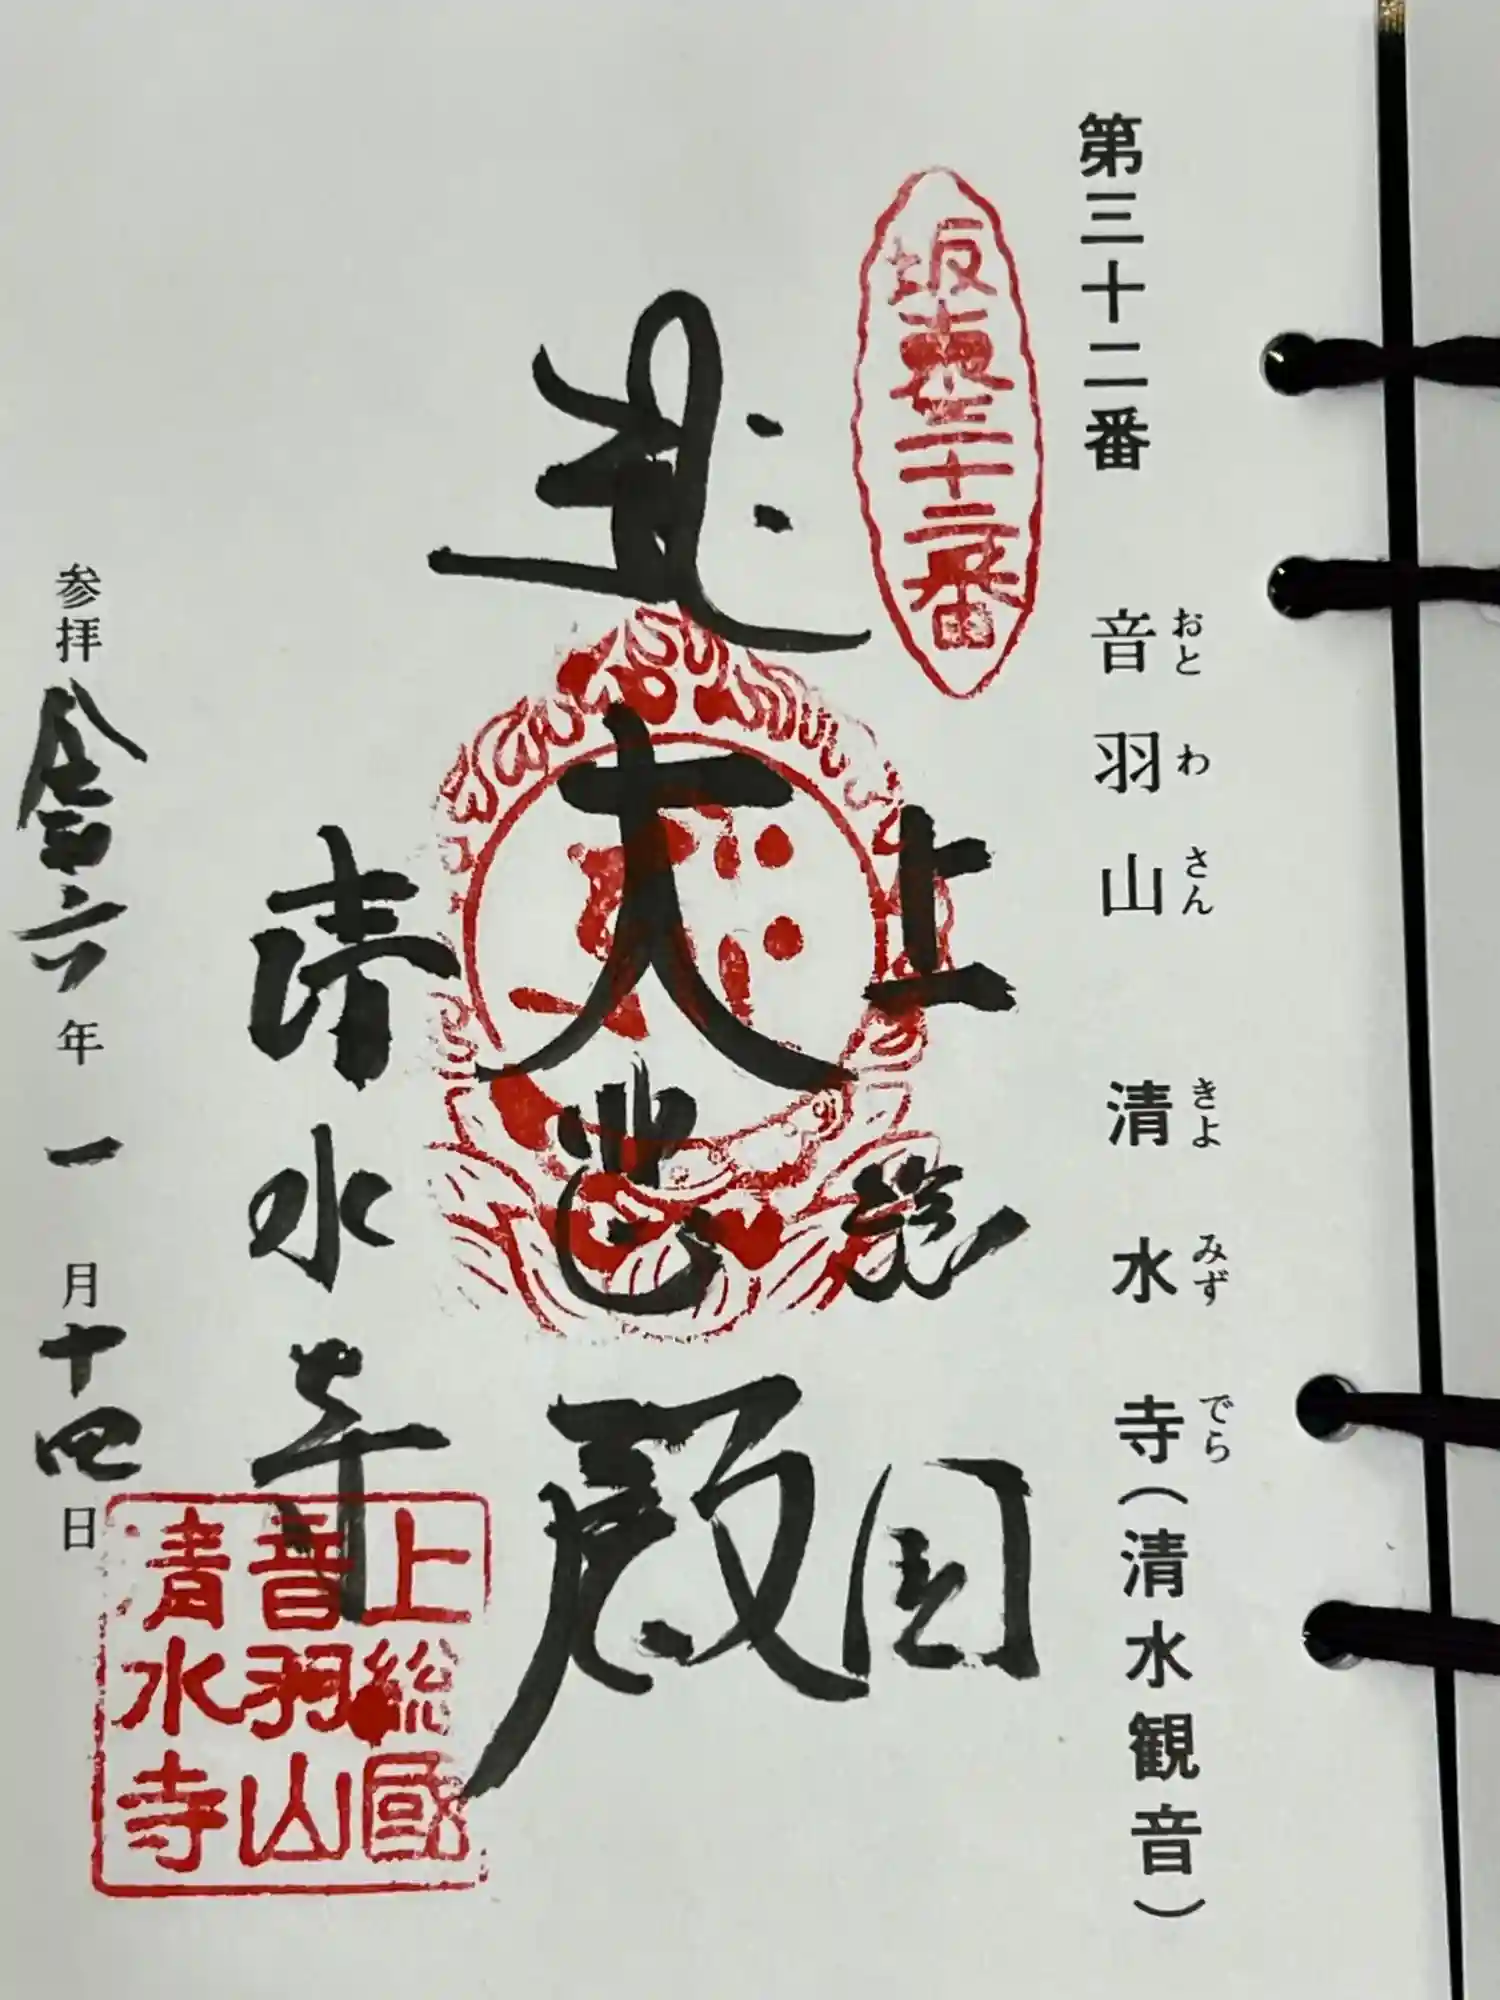 第三十二番 音羽山 清水寺(清水観音)
おとわさん きよみずでら
坂東三十二番
上総国
大悲殿
清水寺
上総國
音羽山
清水寺
参拝 令和六年一月十四日